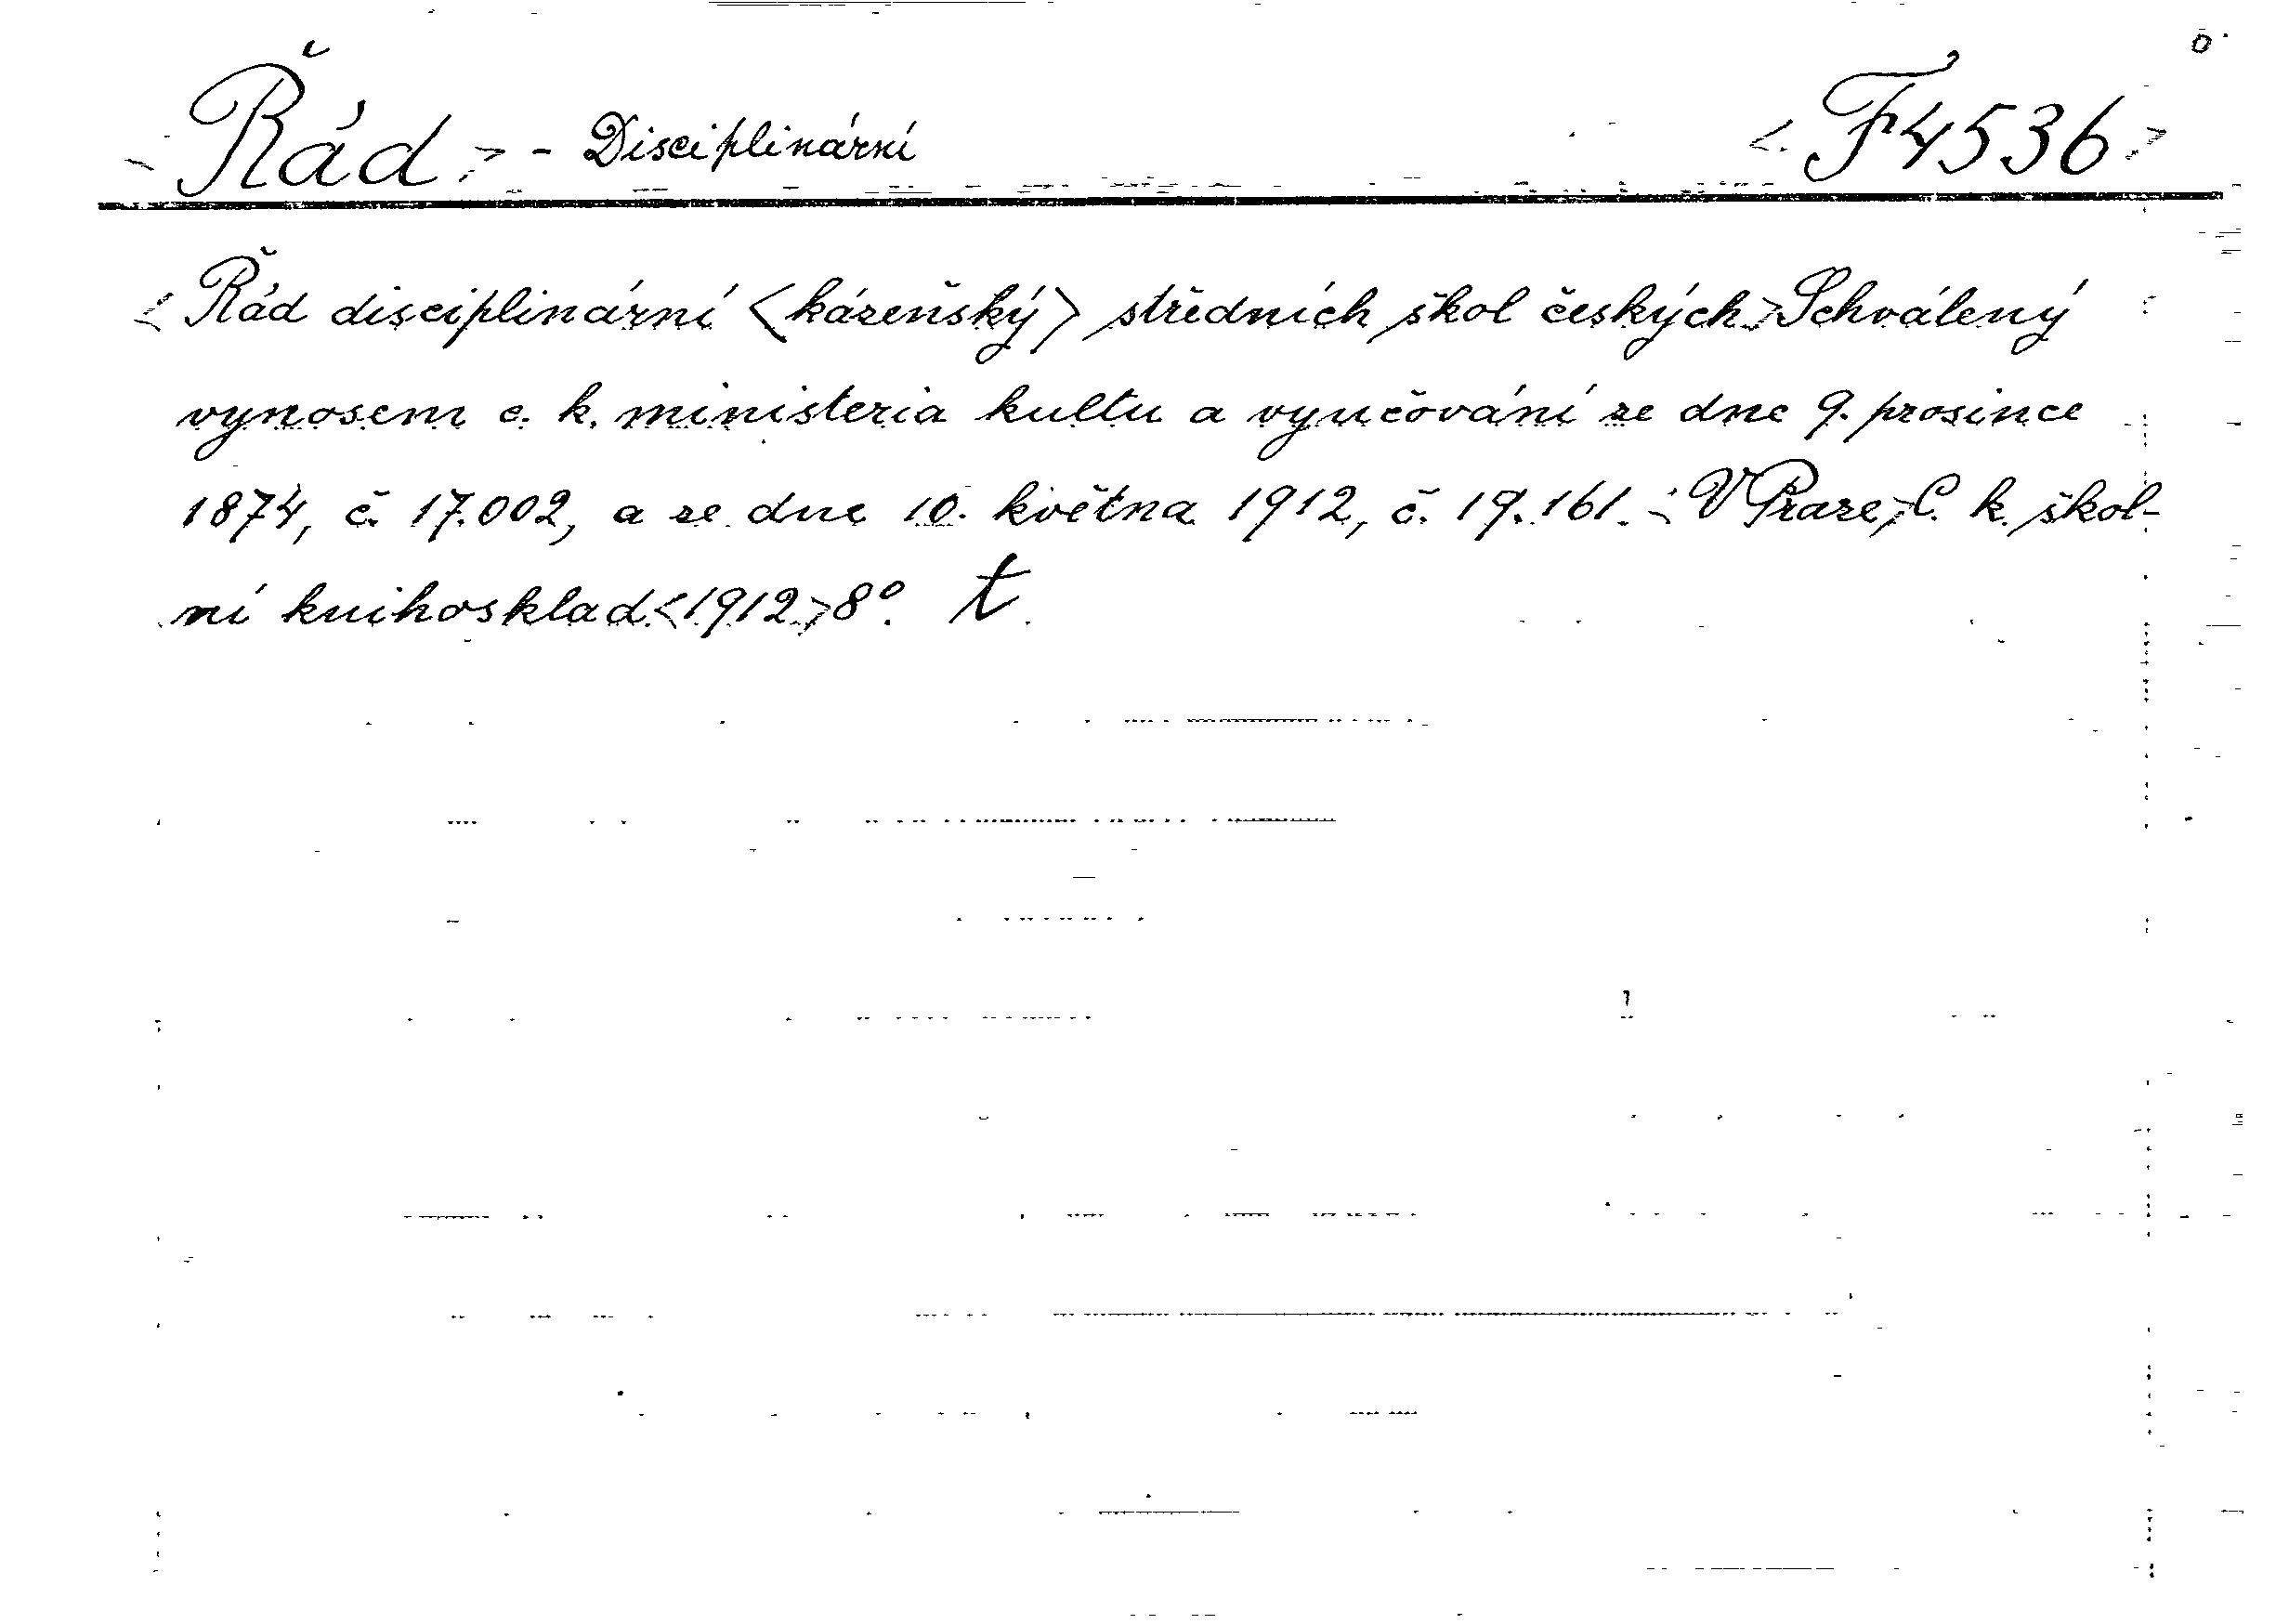 <Řád> - Disciplinární <F4536>
<Řád disciplinární <kázeňský> středních škol českých> Schválený
vynosem c. k. ministeria kultu a vyučování ze dne 9. prosince
1874, č. 17.002, a ze dne 10. května 1912, č. 19.161. <V Praze,> C. k. škol-
ní knihosklad <1912> 8°. t